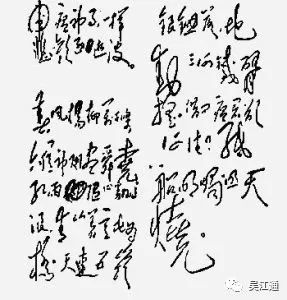 春风楊柳万千条
六億神州尽舜堯
红雨随心翻作
浪青山着意化为
桥天連五岭
银锄落地
动三河铁臂
摇借问瘟君欲
何往纸
船明烛照天
烧
吴江通